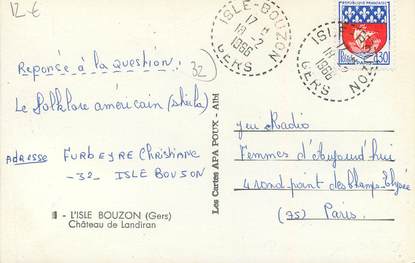 12 €
ISLE-BOUZON
17 H
18-2
1966
GERS
ISLE-BOUZON
18-2
1966
GERS
REPUBLIQUE FRANÇAISE
0,30
Reponse à la question: 32
Le folklore américain (sheila)
Adresse FURBEYRE Christiane
-32 ISLE BOUSON
Les Cartes APA POUX - Albi
Jeu Radio
Femmes d'Aujourd'hui
4 rond-point des Champs-Elysée
(75) Paris.
- L'ISLE BOUZON (Gers)
Château de Landiran